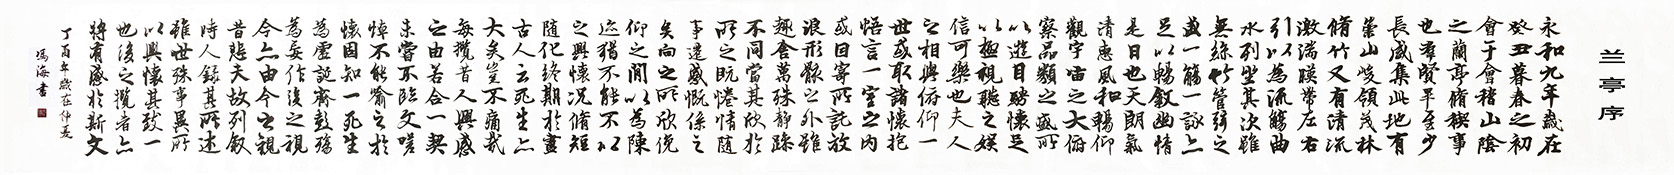 兰亭序
永和九年歲在
癸丑暮春之初
會于會稽山陰
之蘭亭脩禊事
也羣賢畢至少
長咸集此地有
崇山峻領茂林
脩竹又有清流
激湍暎帶左右
引以為流觴曲
水列坐其次雖
無絲竹管弦之
盛一觴一詠亦
足以暢敘幽情
是日也天朗氣
清惠風和暢仰
觀宇宙之大俯
察品類之盛所
以遊目騁懷足
以極視聽之娛
信可樂也夫人
之相與俯仰一
世或取諸懷抱
悟言一室之內
或因寄所託放
浪形骸之外雖
趣舍萬殊靜躁
不同當其欣於
所之既惓情隨
事遷感慨係之
矣向之所欣俛
仰之間以為陳
迹猶不能不以
之興懷況脩短
隨化終期於盡
古人云死生亦
大矣豈不痛哉
每攬昔人興感
之由若合一契
未嘗不臨文嗟
悼不能喻之於
懷固知一死生
為虛誕齊彭殤
為妄作後之視
今亦由今之視
昔悲夫故列敘
時人錄其所述
雖世殊事異所
以興懷其致一
也後之攬者亦
將有感於斯文
丁酉年歲在仲夏
馮海書